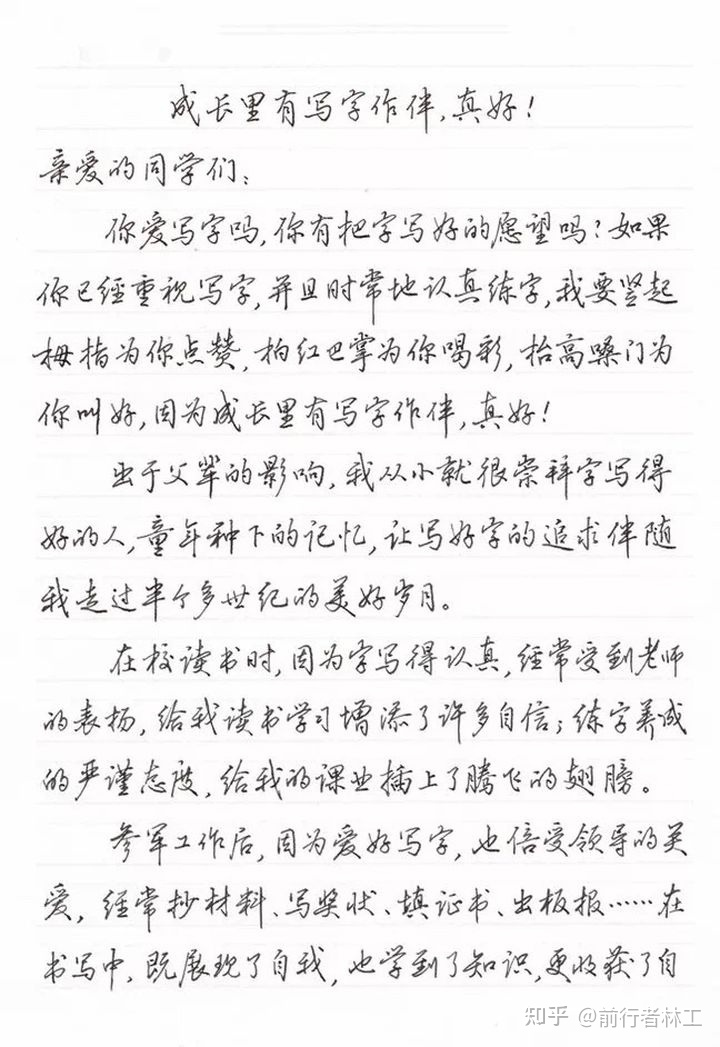 成长里有写字作伴,真好!
亲爱的同学们:
你爱写字吗,你有把字写好的愿望吗?如果
你已经重视写字,并且时常地认真练字,我要竖起
拇指为你点赞,拍红巴掌为你喝彩,抬高嗓门为
你叫好,因为成长里有写字作伴,真好!
出于父辈的影响,我从小就很崇拜字写得
好的人,童年种下的记忆,让写好字的追求伴随
我走过半个多世纪的美好岁月。
在校读书时,因为字写得认真,经常受到老师
的表扬,给我读书学习增添了许多自信;练字养成
的严谨态度,给我的课业插上了腾飞的翅膀。
参军工作后,因为爱好写字,也倍受领导的关
爱,经常抄材料、写奖状、填证书、出板报……在
书写中,既展现了自我,也学到了知识,更收获了自
知乎 @前行者林工